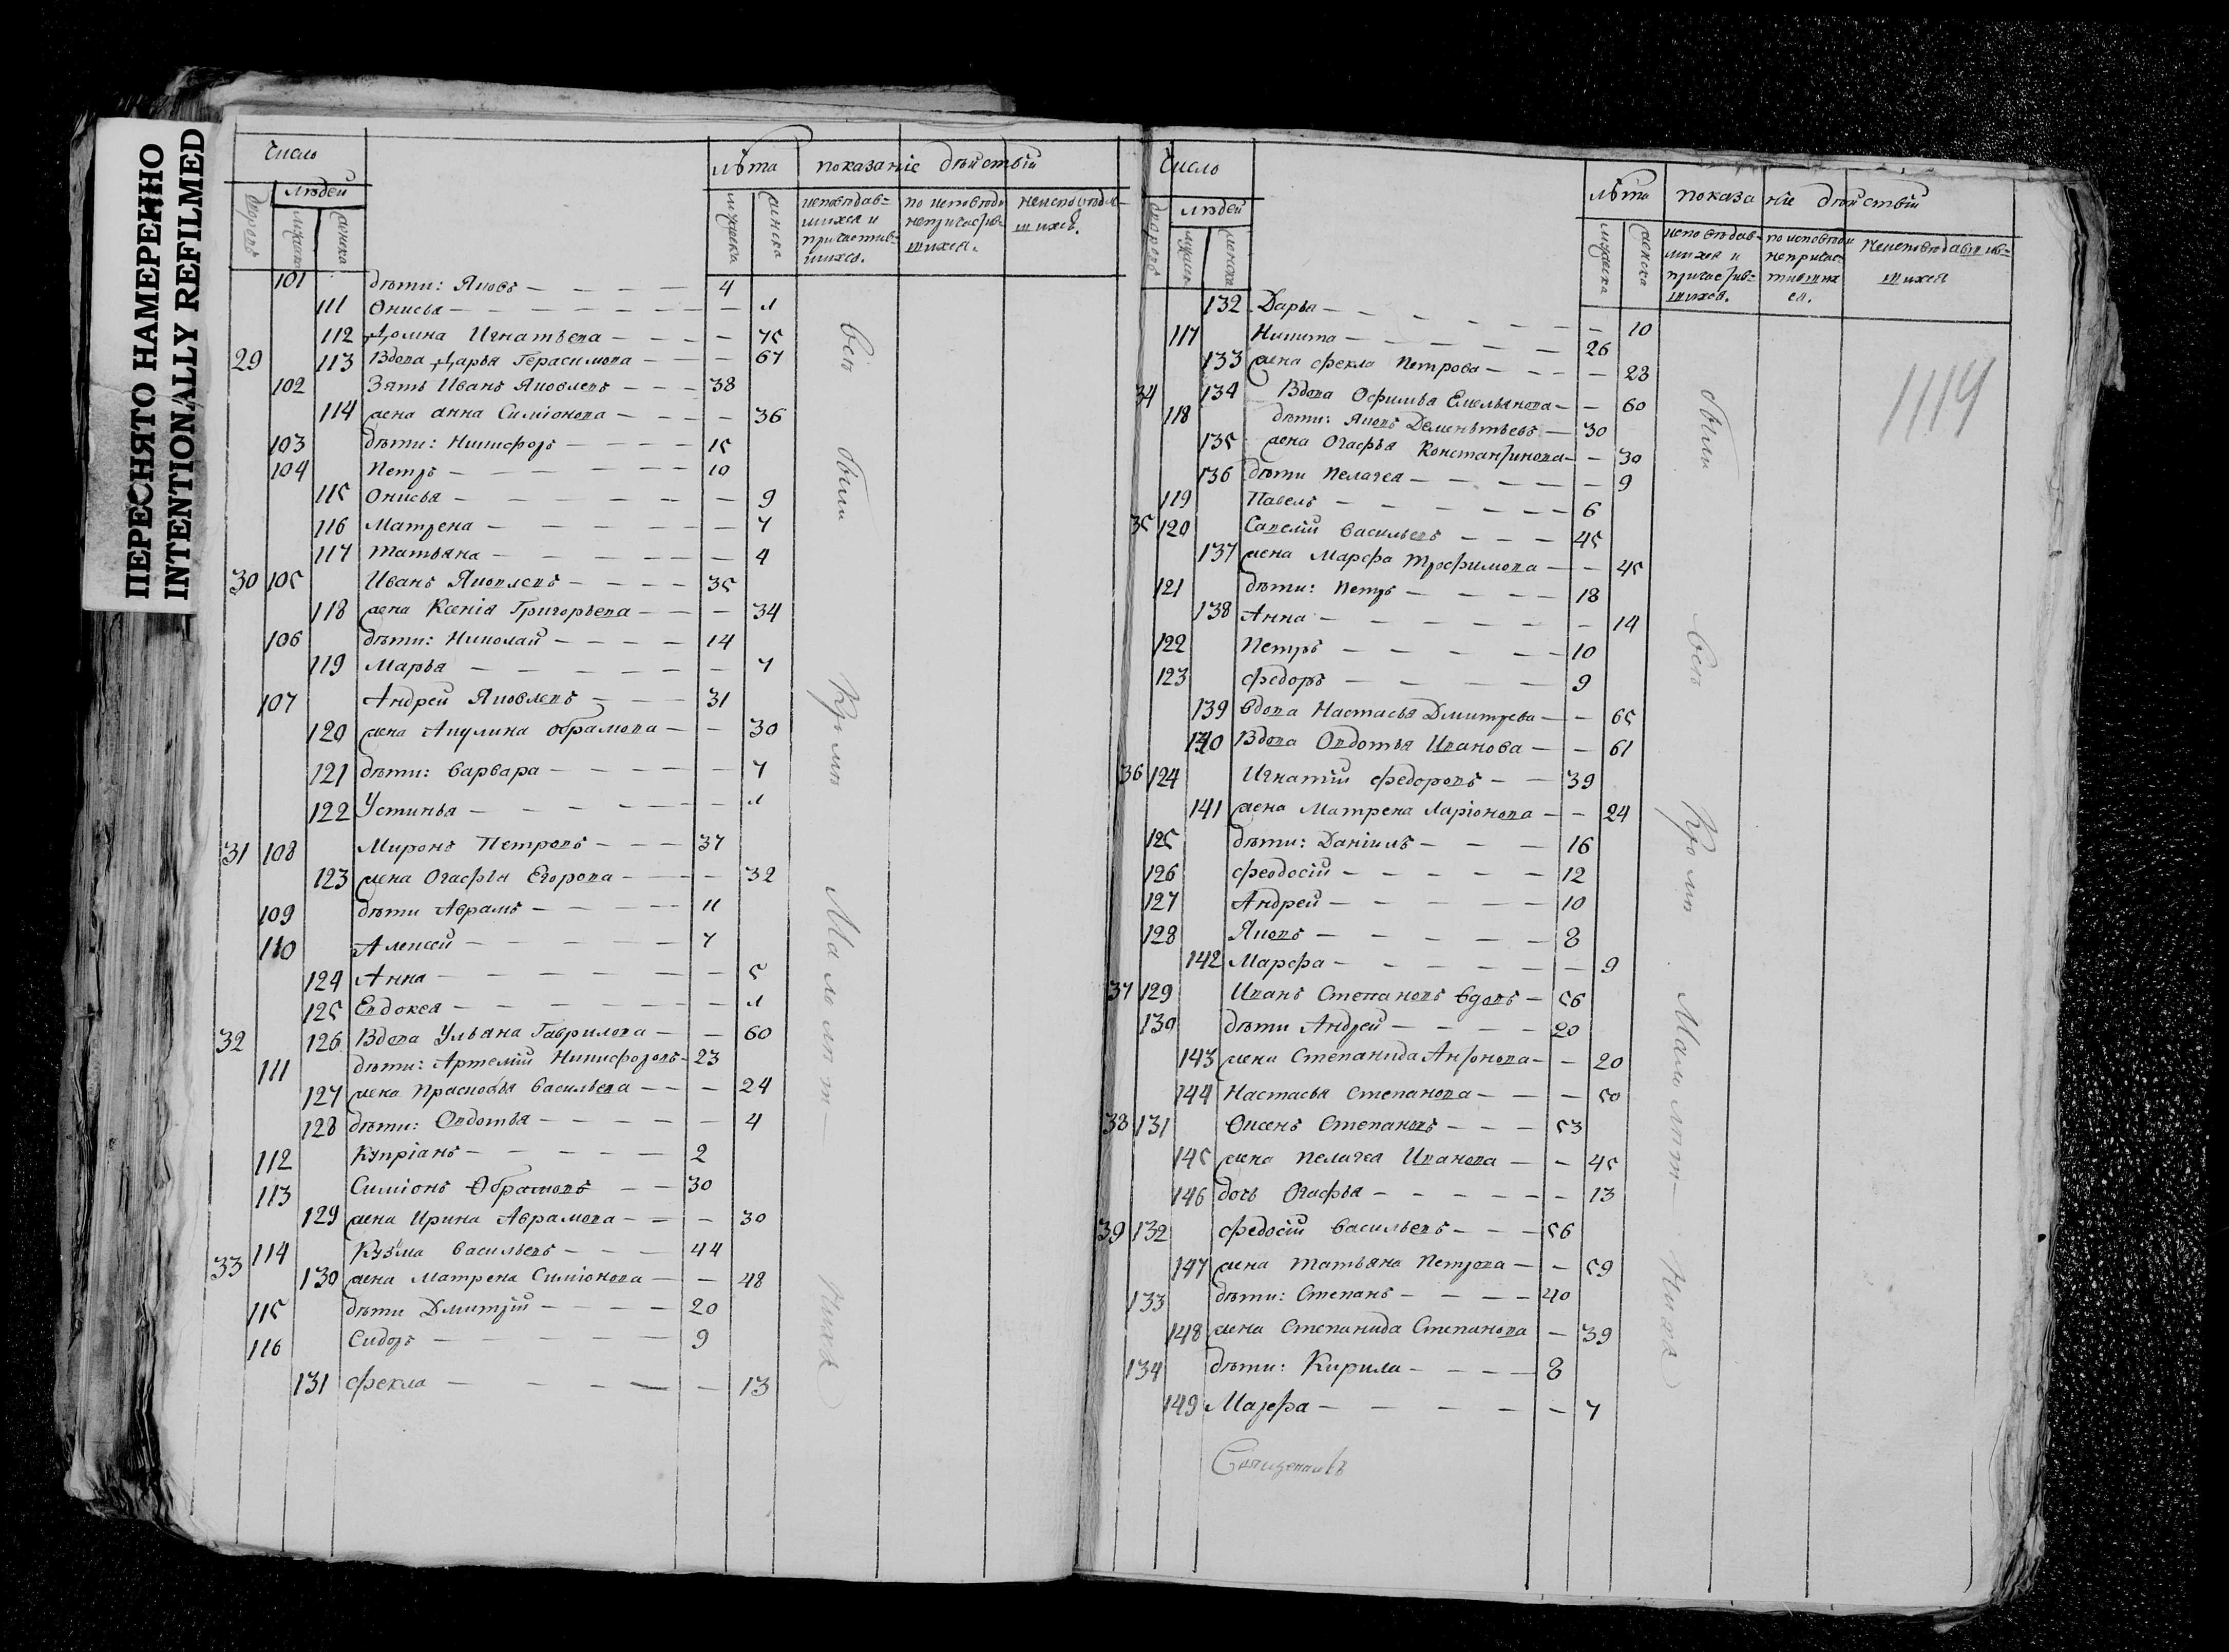 ПЕРЕСНЯТО НАМЕРЕННО
INTENTIONALLY REFILMED
Число лѣта показаніе дѣиствіи
людей
дворовъ мужеска женска мужеска женска исповѣдав= по исповѣди неисповѣдав=
шихся и непричастив= шихся.
причастив= шихся.
шихся.
101 дѣти: Яковъ — 4
111 Онисья — 1
112 Домна Игнатьева — 75
29 113 Вдова Дарья Герасимова — 67
102 Зять Иванъ Яковлевъ — 38
114 жена анна Симіонова — 36
103 дѣти: Никифоръ — 15
104 Петръ — 10
115 Онисья — 9
116 Матрена — 7
117 Татьяна — 4
30 105 Иванъ Яковлевъ — 35
118 жена Ксенія Григорьева — 34
106 дѣти: Николай — 14
119 Марья — 7
107 Андрей Яковлевъ — 31
120 жена Акулина обрамова — 30
121 дѣти: Варвара — 7
122 Устинья — 1
31 108 Миронъ Петровъ — 37
123 жена Огафія Егорова — 32
109 дѣти Аврамъ — 11
110 Алексѣй — 7
124 Анна — 5
125 Евдокея — 1
32 126 Вдова Ульяна Гаврилова — 60
111 дѣти: Артемій Никифоровъ — 23
127 жена Прасковья Васильева — 24
128 дѣти: Овдотья — 4
112 Купріанъ — 2
113 Симіонъ Обрамовъ — 30
129 жена Ирина Аврамова — 30
33 114 Кузьма Васильевъ — 44
130 жена Матрена Симіонова — 48
115 дѣти Дмитрій — 20
116 Сидоръ — 9
131 Фекла — 13
Всѣ были Кромѣ Малолѣт— нихъ
Число лѣта показаніе дѣиствіи
людей
дворовъ мужеска женска мужеска женска исповѣдав= по исповѣди
шихся и непричас=
причастив= тивших
шихся. ся.
шихся
1114
132 Дарья — 10
117 Никита — 26
133 жена Фекла Петрова — 28
34 134 Вдова Офимья Емельянова — 60
118 дѣти: Яковъ Деменьтьевъ — 30
135 жена Огафья Константинова — 30
136 дѣти Пелагея — 9
119 Павелъ — 6
35 120 Савелій Васильевъ — 45
137 жена Марфа Трофимова — 45
121 дѣти: Петръ — 18
138 Анна — 14
122 Петръ — 10
123 Федоръ — 9
139 Вдова Настасья Дмитрева — 65
140 Вдова Овдотья Иванова — 61
36 124 Игнатій Федоровъ — 39
141 жена Матрена Ларіонова — 24
125 дѣти: Даніилъ — 16
126 Феодосій — 12
127 Андрей — 10
128 Яковъ — 8
142 Марфа — 9
37 129 Иванъ Степановъ вдовъ — 56
130 дѣти Андрей — 20
143 жена Степанида Антонова — 20
144 Настасья Степанова — 50
38 131 Степановъ — 53
145 жена Пелагея Иванова — 45
146 дочь Огафья — 13
39 132 Федосій Васильевъ — 56
147 жена Татьяна Петрова — 59
133 дѣти: Степанъ — 40
148 жена Степанида Степанова — 39
134 дѣти: Кирила — 8
149 Марфа — 7
были всѣ Кромѣ Малолѣт— нихъ
Священникъ